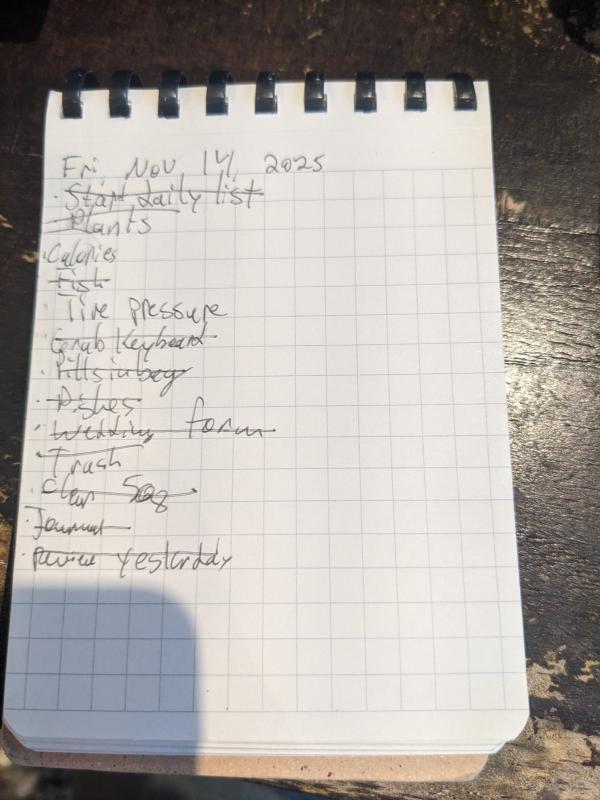 Fri, Nov 14, 2025
· Start daily list
Plants
· Calories
· Fish
· Tire pressure
Grab Keyboard
· Pills in bag
· Dishes
· Wedding form
· Trash
· Clean
· Journal
· Review yesterday